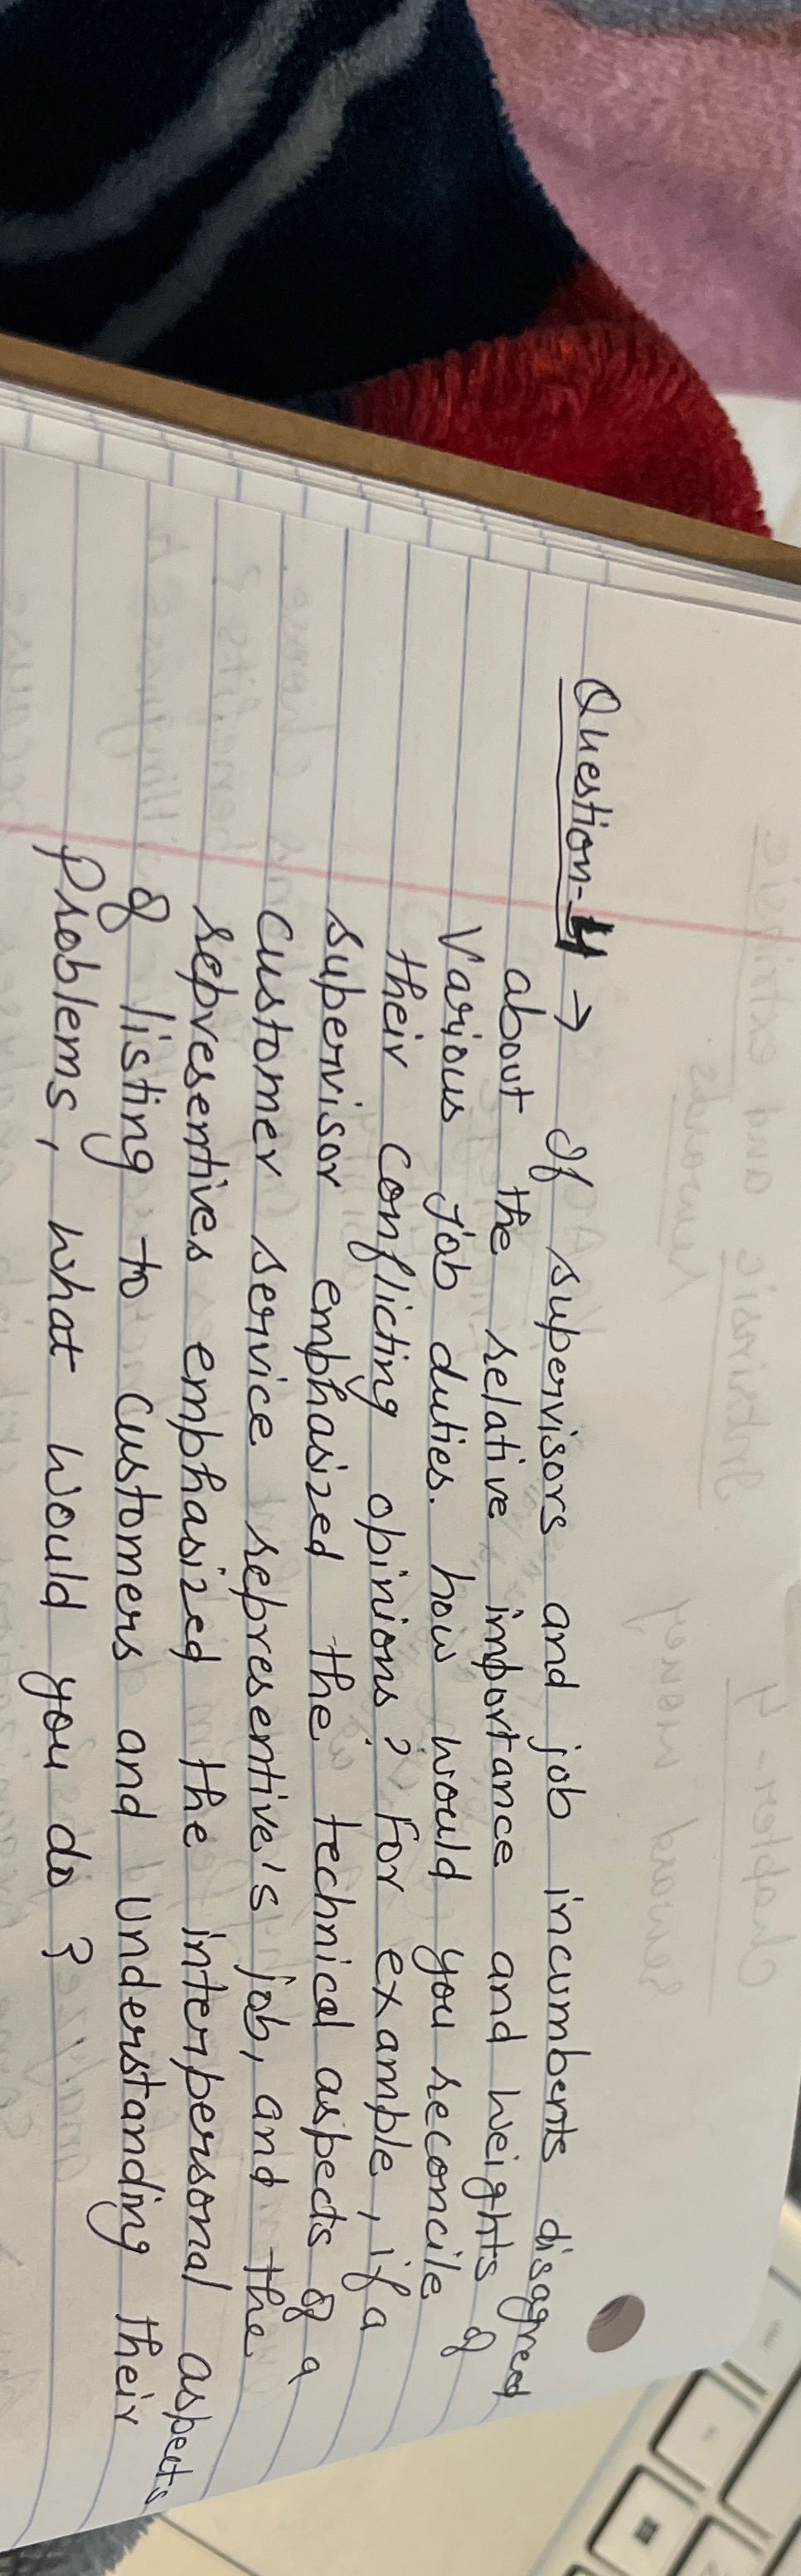 Question-4 → If supervisors and job incumbents disagree
about the relative importance and weights of
various job duties. how would you reconcile
their conflicting opinions? For example, if a
supervisor emphasized the technical aspects of a
customer service representive's job, and the
representives emphasized the interpersonal aspects
of listing to customers and understanding their
problems, what would you do?